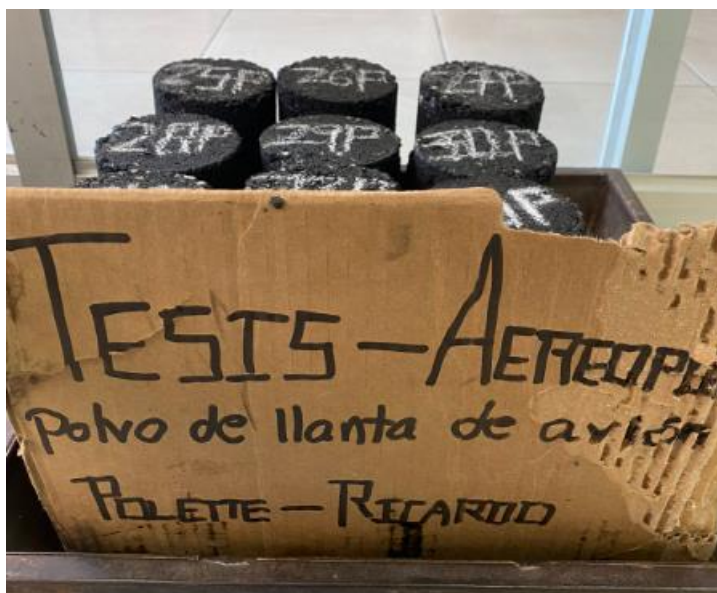 25P 26P
28P 29P 30P
TESIS – AEREOPU
Polvo de llanta de avión
POLETTE – RICARDO